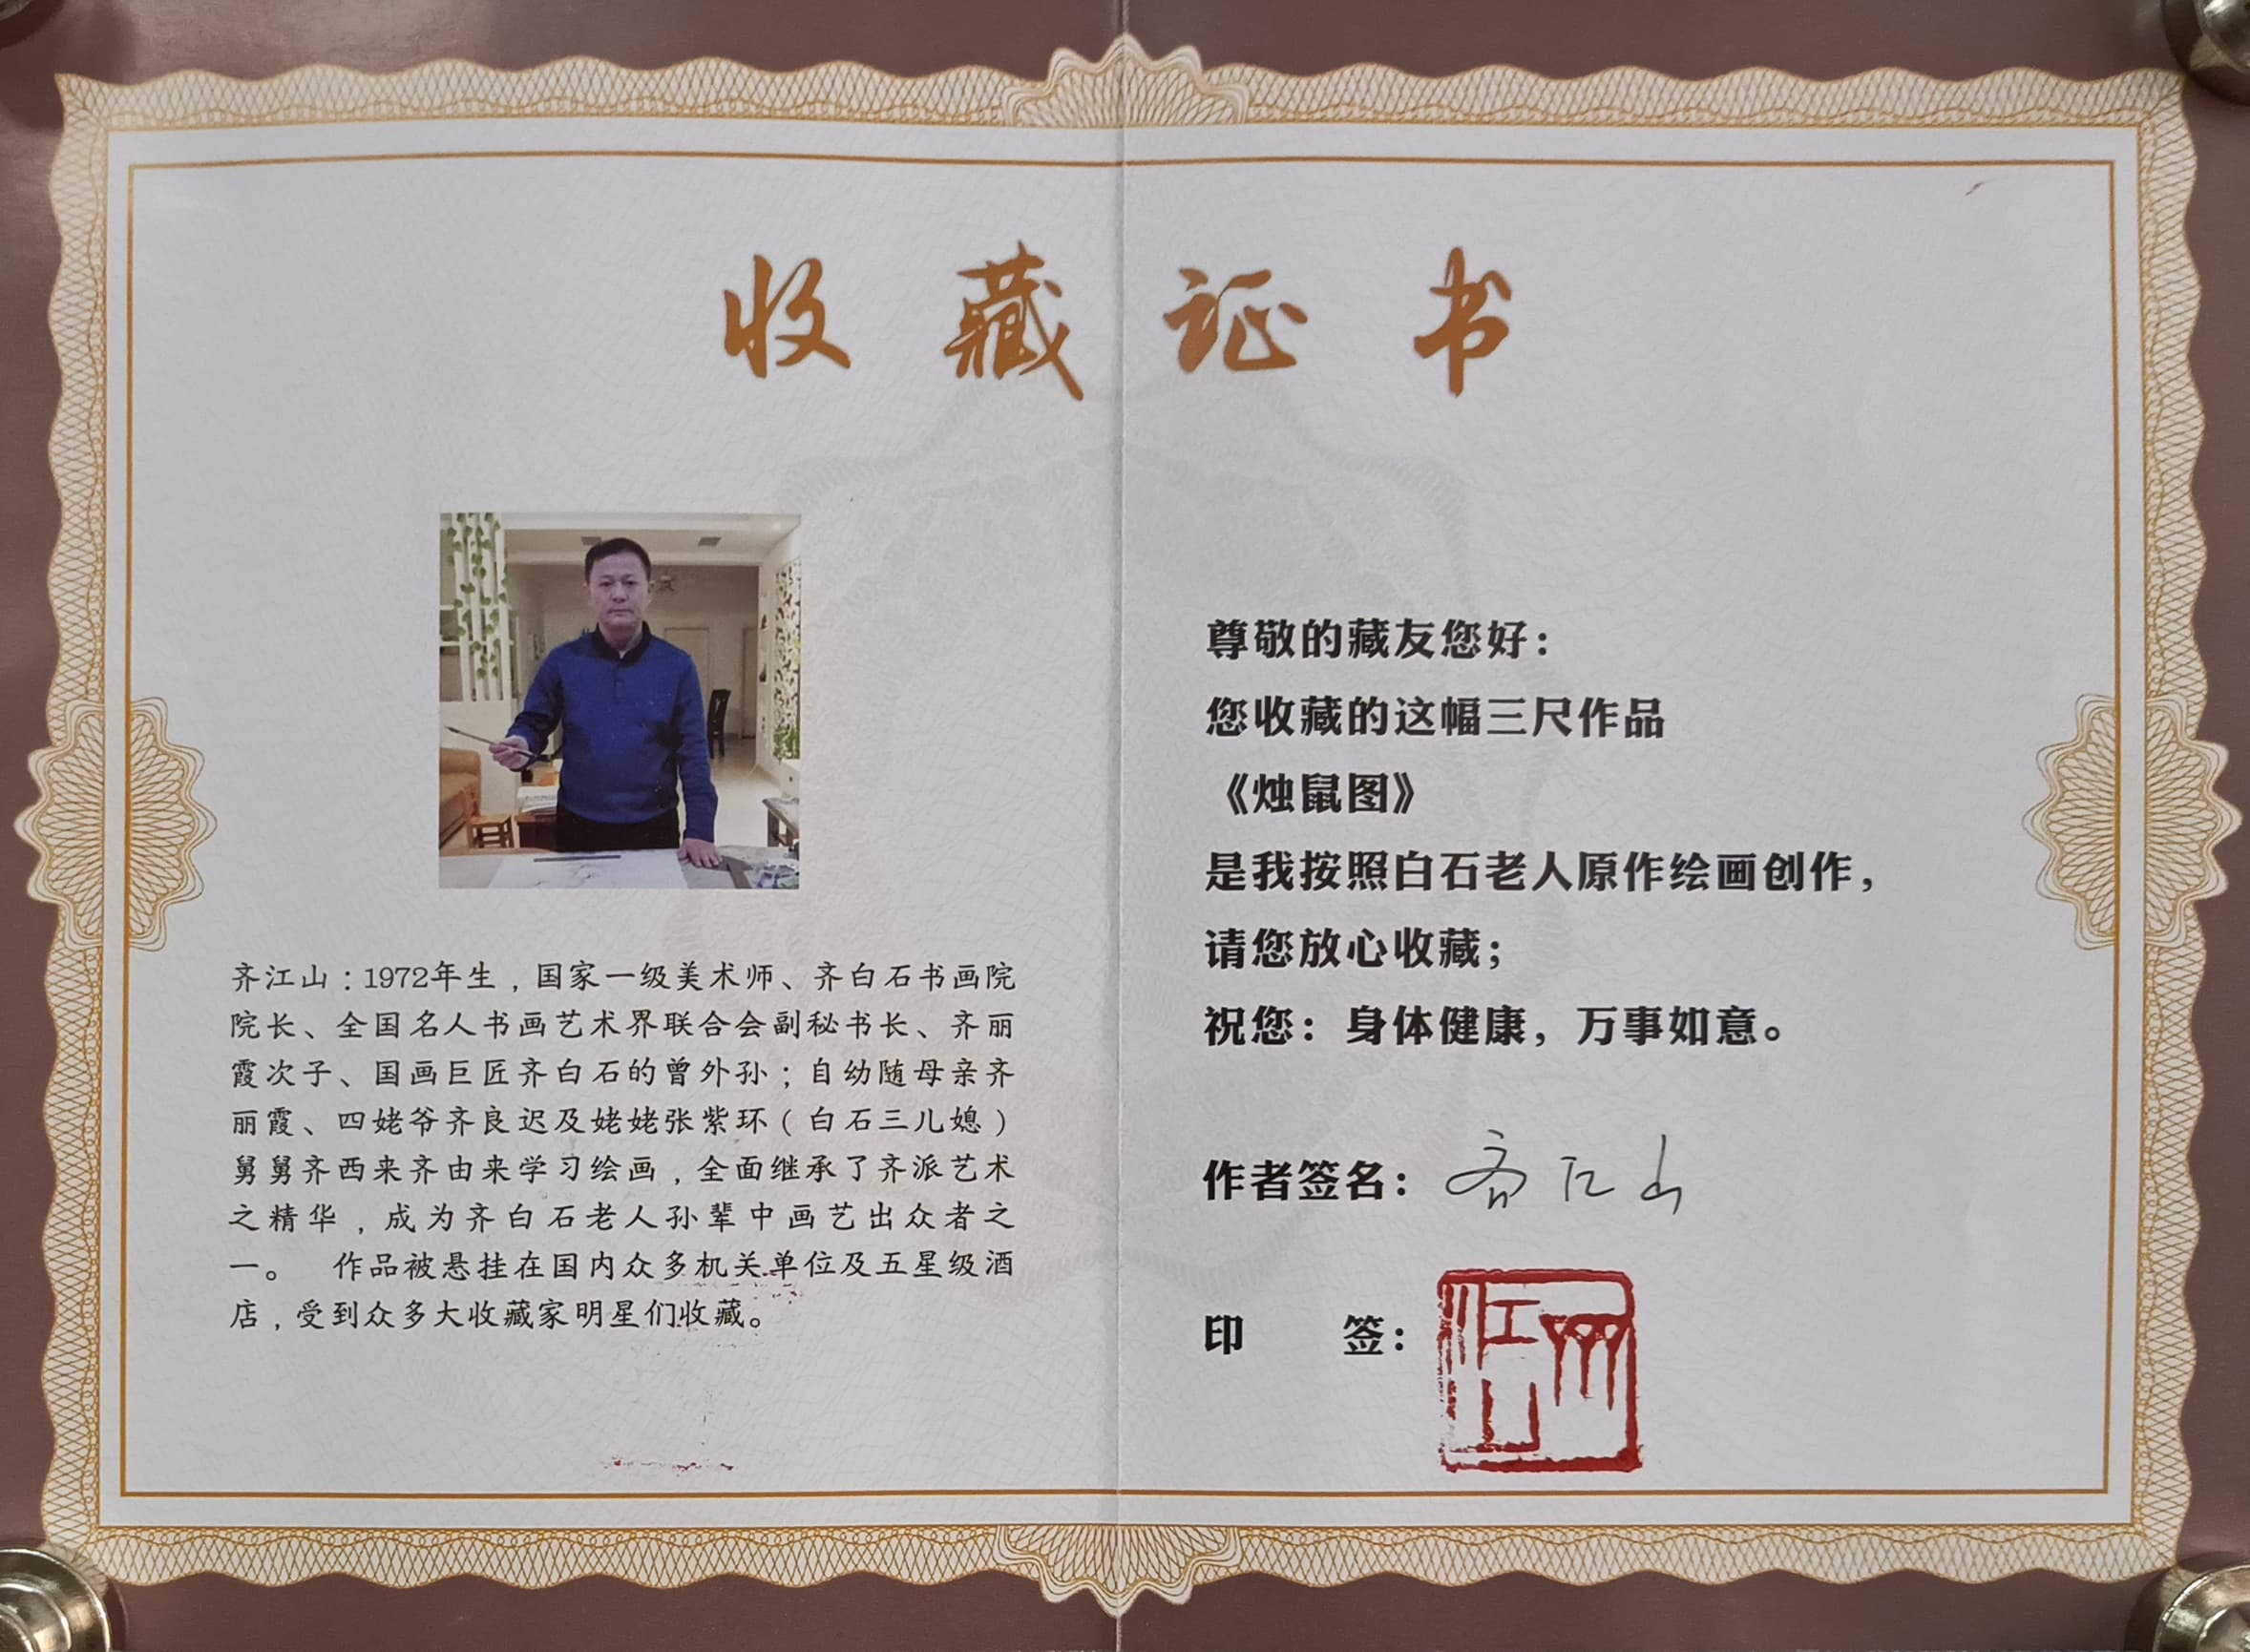 收藏证书
齐江山：1972年生，国家一级美术师、齐白石书画院
院长、全国名人书画艺术界联合会副秘书长、齐丽
霞次子、国画巨匠齐白石的曾外孙；自幼随母亲齐
丽霞、四姥爷齐良迟及姥姥张紫环（白石三儿媳）
舅舅齐西来齐由来学习绘画，全面继承了齐派艺术
之精华，成为齐白石老人孙辈中画艺出众者之
一。 作品被悬挂在国内众多机关单位及五星级酒
店，受到众多大收藏家明星们收藏。
尊敬的藏友您好：
您收藏的这幅三尺作品
《烛鼠图》
是我按照白石老人原作绘画创作，
请您放心收藏；
祝您：身体健康，万事如意。
作者签名：齐江山
印 签：齐江山